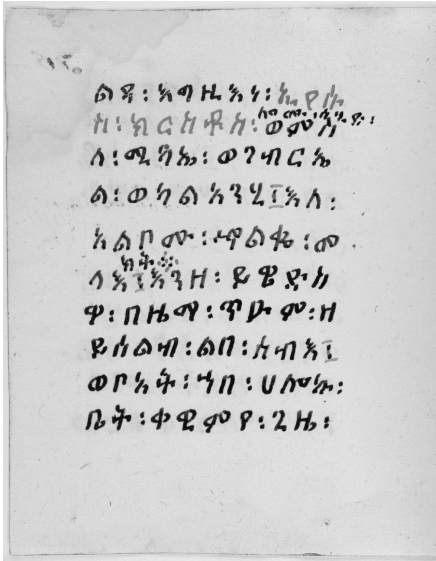 ልዳ፡ እግዚእነ፡ ኢየሱ
ስ፡ ክርስቶስ፡ ወምስ
ለ፡ ሚካኤ፡ ወገብርኤ
ል፡ ወካልኣንሂ፤ እለ፡
አልቦሙ፡ ኍልቈ፡ መ
ክት፨
ላእ፤ እንዘ፡ ይዌድስ
ዎ፡ በዜማ፡ ጥዑም፡ ዘ
ይሰልብ፡ ልበ፡ ሰብእ፤
ወቦአት፡ ኀበ፡
ቤት፡ ቀዊምየ፡ ጊዜ፡